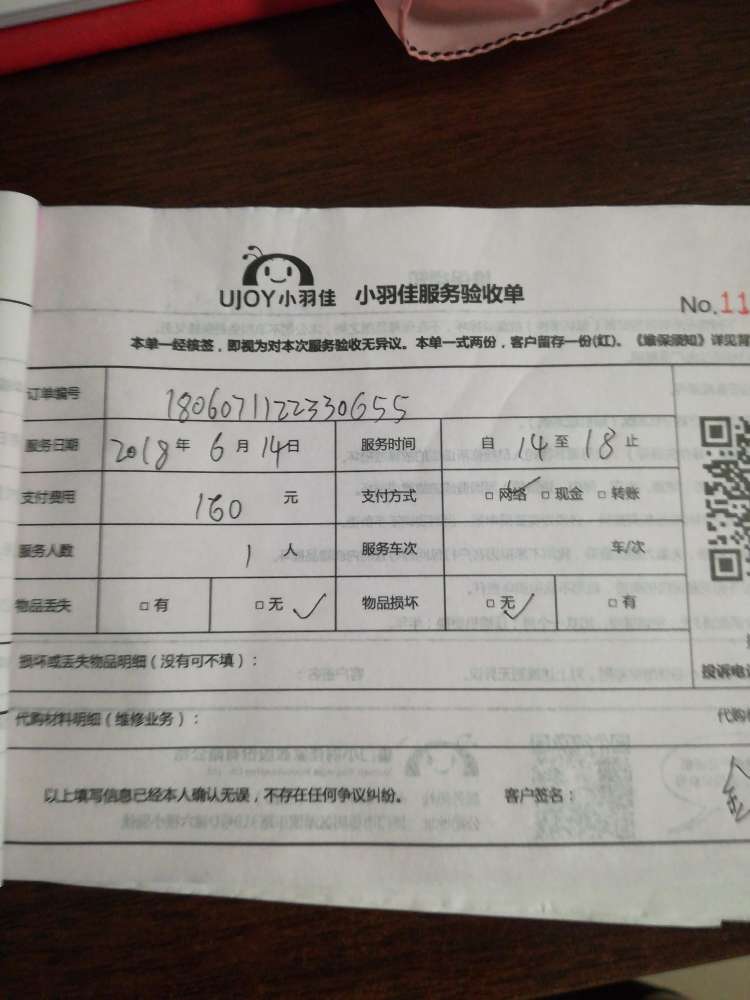 UJOY小羽佳 小羽佳服务验收单
No.11
本单一经核签，即视为对本次服务验收无异议。本单一式两份，客户留存一份(红)。《维保须知》详见背
订单编号 1806071122330655
服务日期 2018年 6月 14日 服务时间 自 14 至 18 止
支付费用 160 元 支付方式 □网络 ✓ □现金 □转账
服务人数 1 人 服务车次 车/次
物品丢失 □有 □无 ✓ 物品损坏 □无 ✓ □有
损坏或丢失物品明细（没有可不填）：
投诉电话
代购材料明细（维修业务）：
代购
以上填写信息已经本人确认无误，不存在任何争议纠纷。 客户签名：